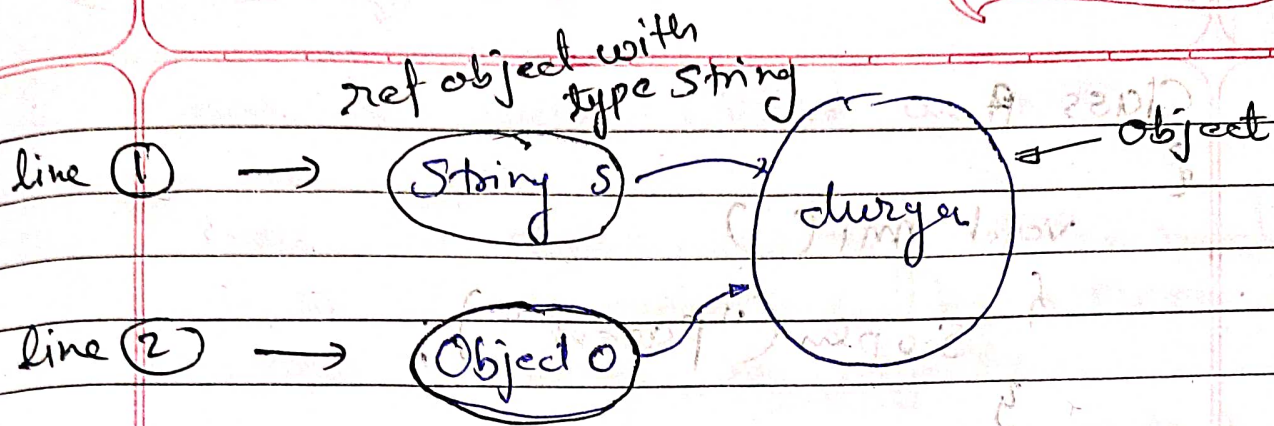 ref object with
type String
line 1 → String s
durga
← Object
line 2 → Object O